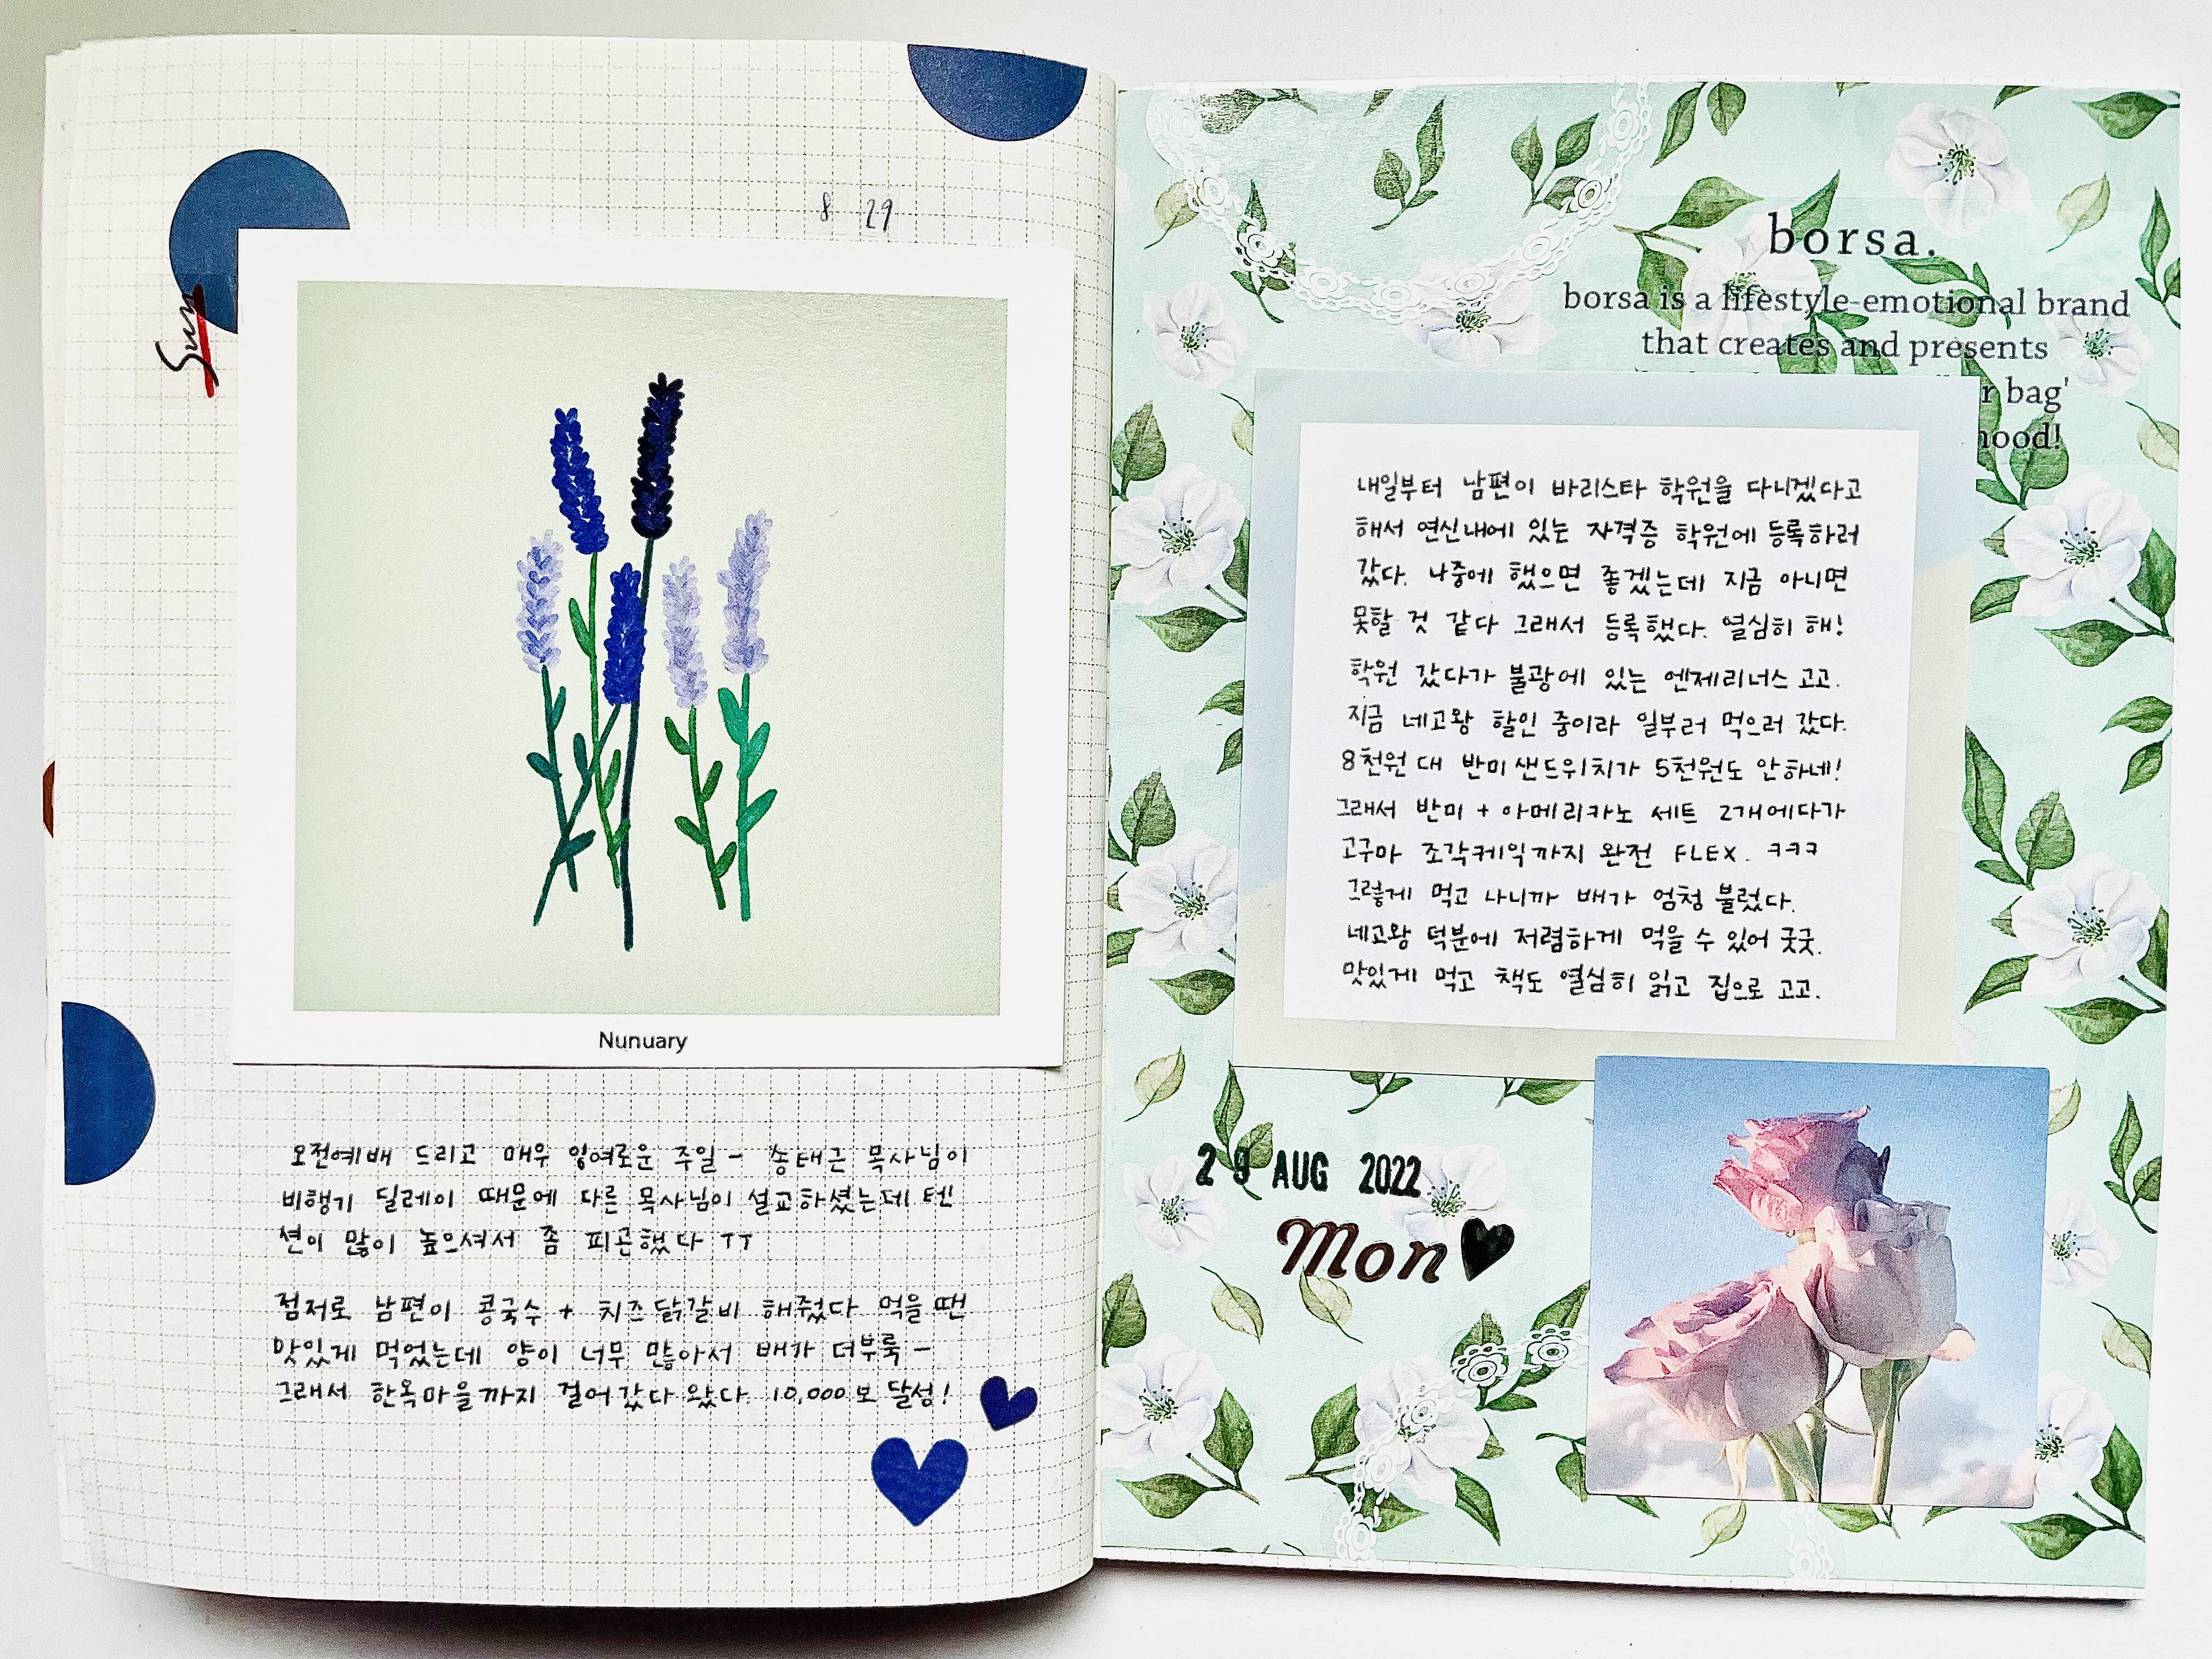 8 29
Sun
Nunuary
오전예배 드리고 매우 잉여로운 주일 - 송태근 목사님이
비행기 딜레이 때문에 다른 목사님이 설교하셨는데 텐
션이 많이 높으셔서 좀 피곤했다 ㅜㅜ
점저로 남편이 콩국수 + 치즈닭갈비 해줬다 먹을 땐
맛있게 먹었는데 양이 너무 많아서 배가 더부룩 -
그래서 한옥마을까지 걸어갔다 왔다. 10,000보 달성!
borsa.
borsa is a lifestyle-emotional brand
that creates and presents
bag'
내일부터 남편이 바리스타 학원을 다니겠다고
해서 연신내에 있는 자격증 학원에 등록하러
갔다. 나중에 했으면 좋겠는데 지금 아니면
못할 것 같다 그래서 등록했다. 열심히 해!
학원 갔다가 불광에 있는 엔제리너스 고고.
지금 네고왕 할인 중이라 일부러 먹으러 갔다.
8천원대 반미샌드위치가 5천원도 안하네!
그래서 반미 + 아메리카노 세트 2개에다가
고구마 조각케익까지 완전 FLEX. ㅋㅋㅋ
그렇게 먹고 나니까 배가 엄청 불렀다.
네고왕 덕분에 저렴하게 먹을 수 있어 굿굿.
맛있게 먹고 책도 열심히 읽고 집으로 고고.
29 AUG 2022
Mon